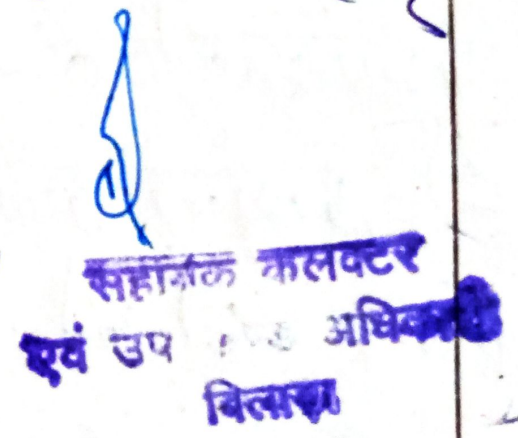 सहायक कलक्टर
एवं उप अधिकारी
बिलाड़ा